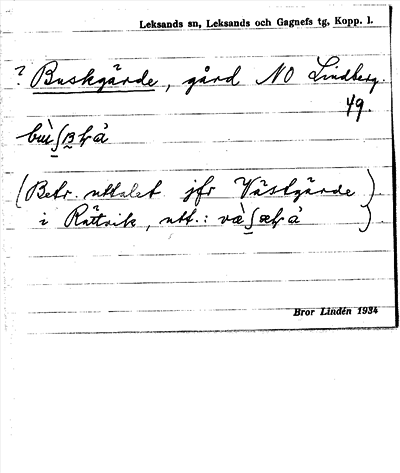 Leksands sn, Leksands och Gagnefs tg, Kopp. l.
? Buskgärde, gård NO Lindberg.
49.
(Betr. uttalet jfr Västgärde)
i Rättvik, utt.:
Bror Lindén 1934